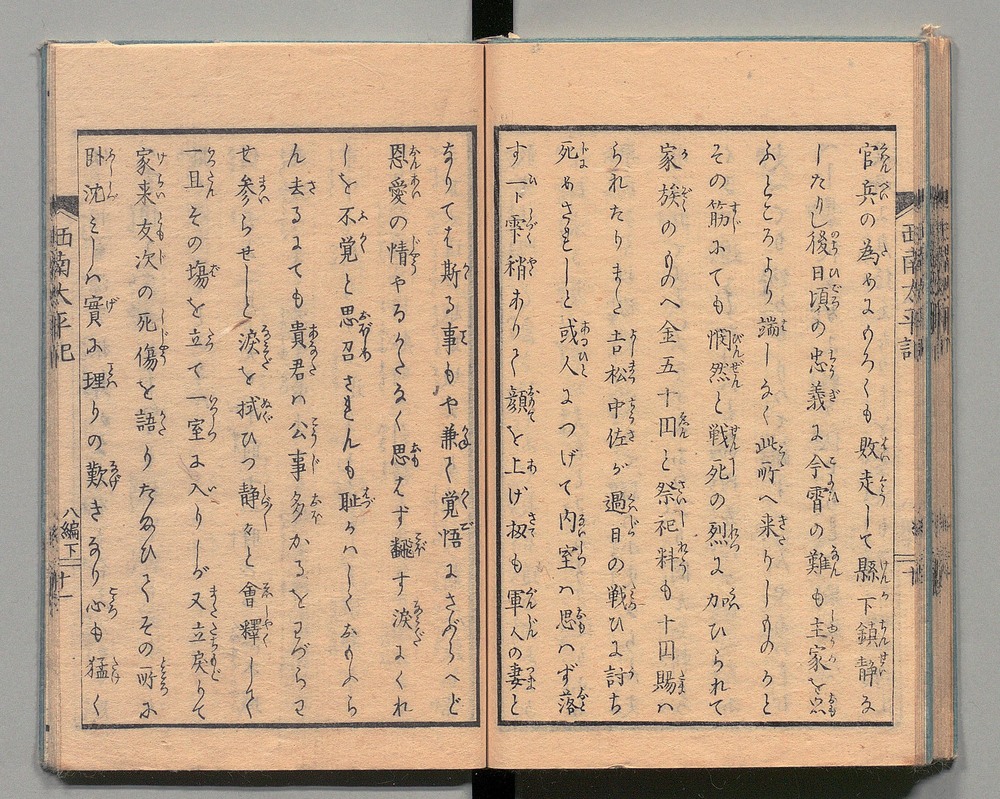 官兵の為めにもろくも敗走して縣下鎮静な
したりし後日頃の忠義に今宵の難も主家を思
ふところより端しなく此所へ来りしものゝと
その筋にても憫然と戦死の烈に加ひられて
家族のものへ金五十円と祭祀料も十円賜は
られたりまた吉松中佐が過日の戦ひに討ち
死めされしと或人につげて内室ハ思ハず落
す一下雫稍ありて顔を上げ扨も軍人の妻と
なりてハ斯る事もや兼て覚悟にさふらへど
恩愛の情やるかたなく思はず飜す涙にくれ
しを不覚と思召されんも耻かハしくおもふら
ん去るにても貴君ハ公事多かるをわづらわ
せ参らせしと涙を拭ひつ静々と會釋して
一旦その塲を立て一室に入りしが又立戻りて
家来友次の死傷を語りたまひてその所に
臥沈みしハ實に理りの歎きなり心も猛く
西南太平記
十
西南太平記
八編下
十一